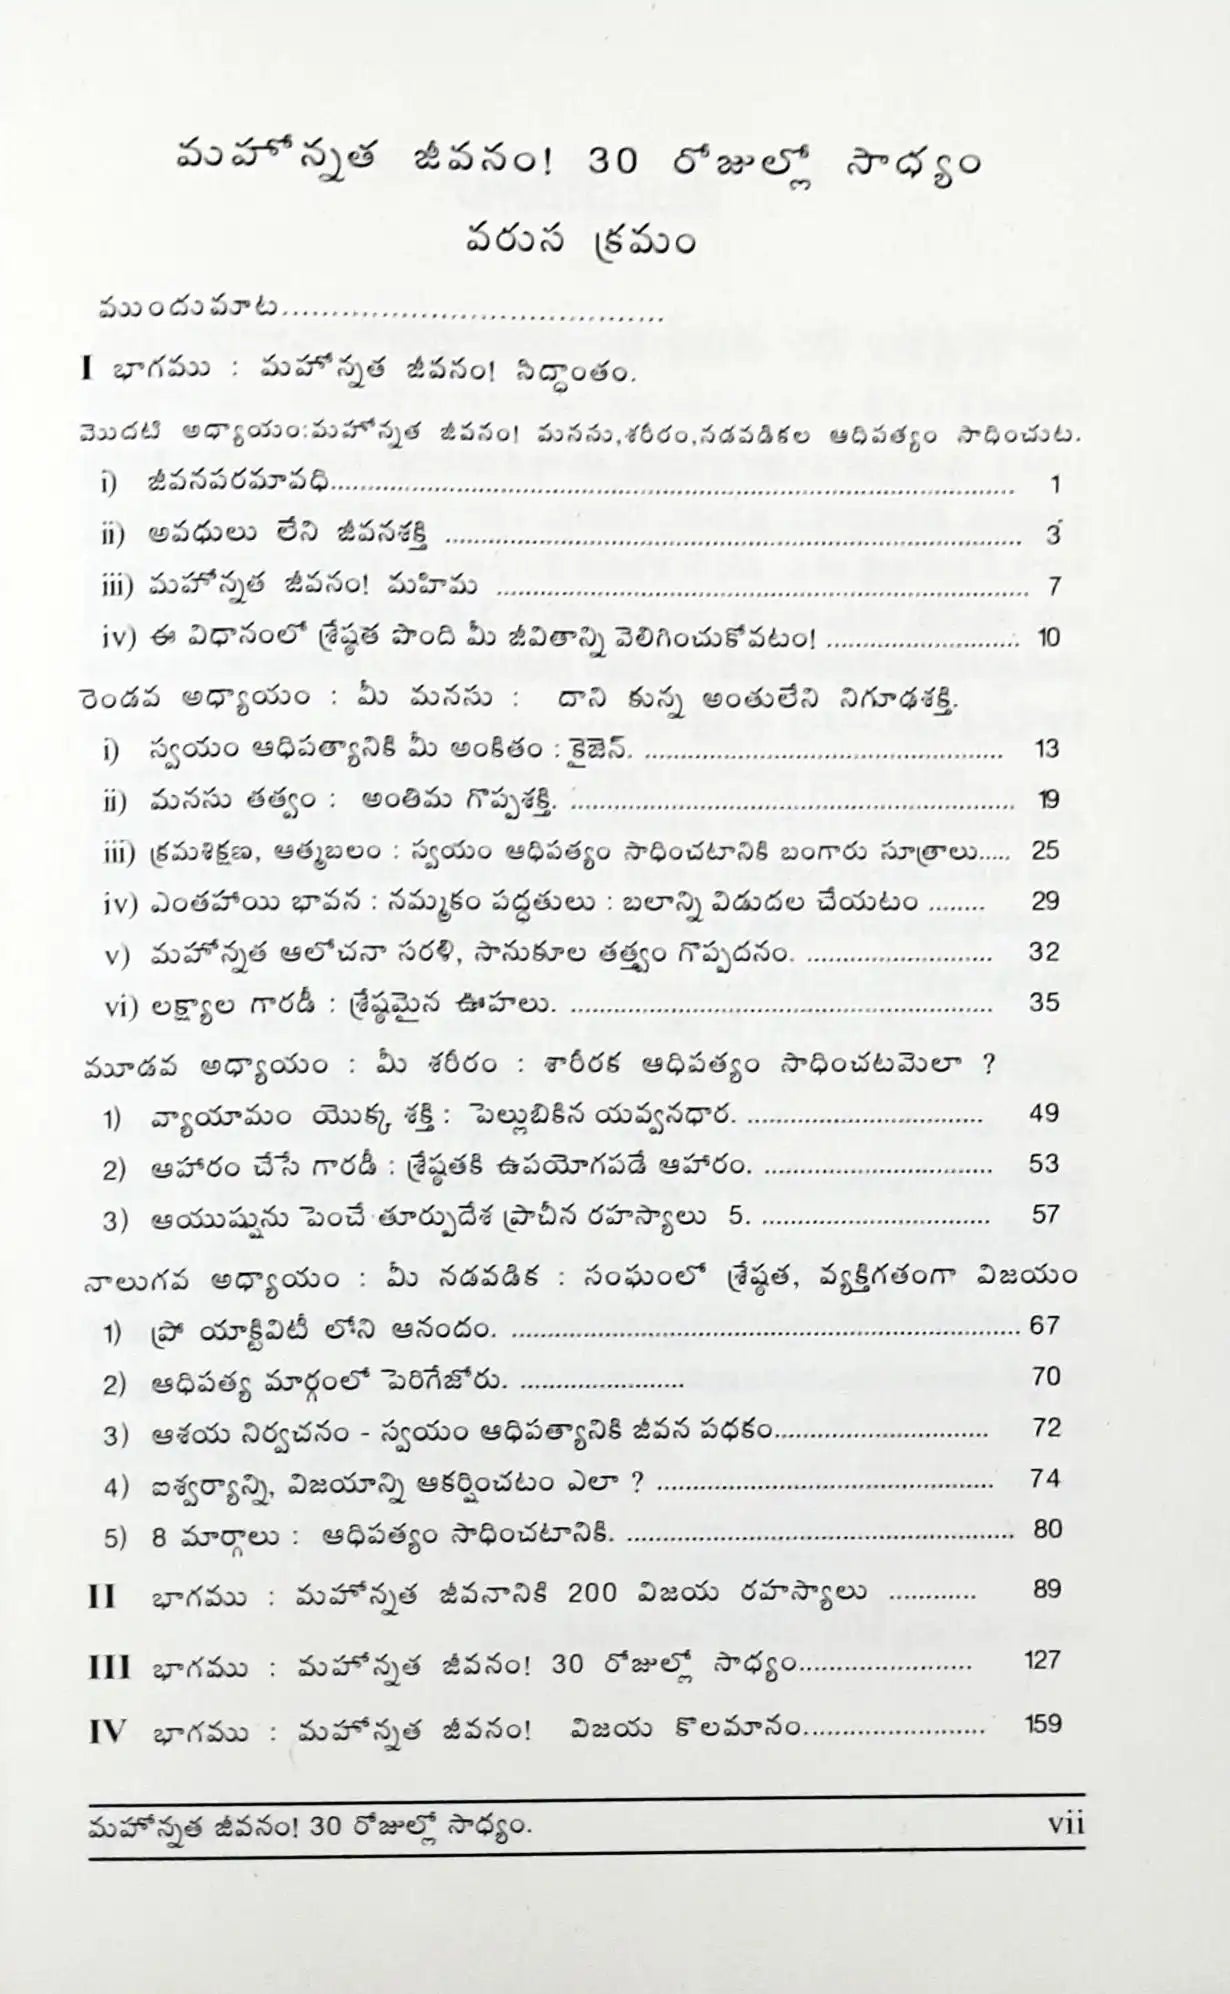 మహోన్నత జీవనం! 30 రోజుల్లో సాధ్యం
వరుస క్రమం
ముందుమాట......................................
I భాగము : మహోన్నత జీవనం! సిద్ధాంతం.
మొదటి అధ్యాయం:మహోన్నత జీవనం! మనను,శరీరం,నడవడికల ఆధిపత్యం సాధించుట.
i) జీవనపరమావధి.......................................................... 1
ii) అవధులు లేని జీవనశక్తి .......................................................... 3
iii) మహోన్నత జీవనం! మహిమ .......................................................... 7
iv) ఈ విధానంలో శ్రేష్ఠత పొంది మీ జీవితాన్ని వెలిగించుకోవటం! ........................... 10
రెండవ అధ్యాయం : మీ మనసు : దాని కున్న అంతులేని నిగూఢశక్తి.
i) స్వయం ఆధిపత్యానికి మీ అంకితం : కైజెన్. .................................................. 13
ii) మనసు తత్వం : అంతిమ గొప్పశక్తి. .......................................................... 19
iii) క్రమశిక్షణ, ఆత్మబలం : స్వయం ఆధిపత్యం సాధించటానికి బంగారు సూత్రాలు..... 25
iv) ఎంతహాయి భావన : నమ్మకం పద్ధతులు : బలాన్ని విడుదల చేయటం ........ 29
v) మహోన్నత ఆలోచనా సరళి, సానుకూల తత్త్వం గొప్పదనం. .......................... 32
vi) లక్ష్యాల గారడీ : శ్రేష్ఠమైన ఊహలు. .......................................................... 35
మూడవ అధ్యాయం : మీ శరీరం : శారీరక ఆధిపత్యం సాధించటమెలా ?
1) వ్యాయామం యొక్క శక్తి : పెల్లుబికిన యవ్వనధార. ................................. 49
2) ఆహారం చేసే గారడీ : శ్రేష్ఠతకి ఉపయోగపడే ఆహారం. ................................ 53
3) ఆయుష్షును పెంచే తూర్పుదేశ ప్రాచీన రహస్యాలు 5. ................................ 57
నాలుగవ అధ్యాయం : మీ నడవడిక : సంఘంలో శ్రేష్ఠత, వ్యక్తిగతంగా విజయం
1) ప్రో యాక్టివిటీ లోని ఆనందం. .......................................................... 67
2) ఆధిపత్య మార్గంలో పెరిగేజోరు. ....................... 70
3) ఆశయ నిర్వచనం - స్వయం ఆధిపత్యానికి జీవన పధకం.............................. 72
4) ఐశ్వర్యాన్ని, విజయాన్ని ఆకర్షించటం ఎలా ? ............................................... 74
5) 8 మార్గాలు : ఆధిపత్యం సాధించటానికి. ...................................................... 80
II భాగము : మహోన్నత జీవనానికి 200 విజయ రహస్యాలు ............ 89
III భాగము : మహోన్నత జీవనం! 30 రోజుల్లో సాధ్యం........................ 127
IV భాగము : మహోన్నత జీవనం! విజయ కొలమానం......................... 159
మహోన్నత జీవనం! 30 రోజుల్లో సాధ్యం. vii